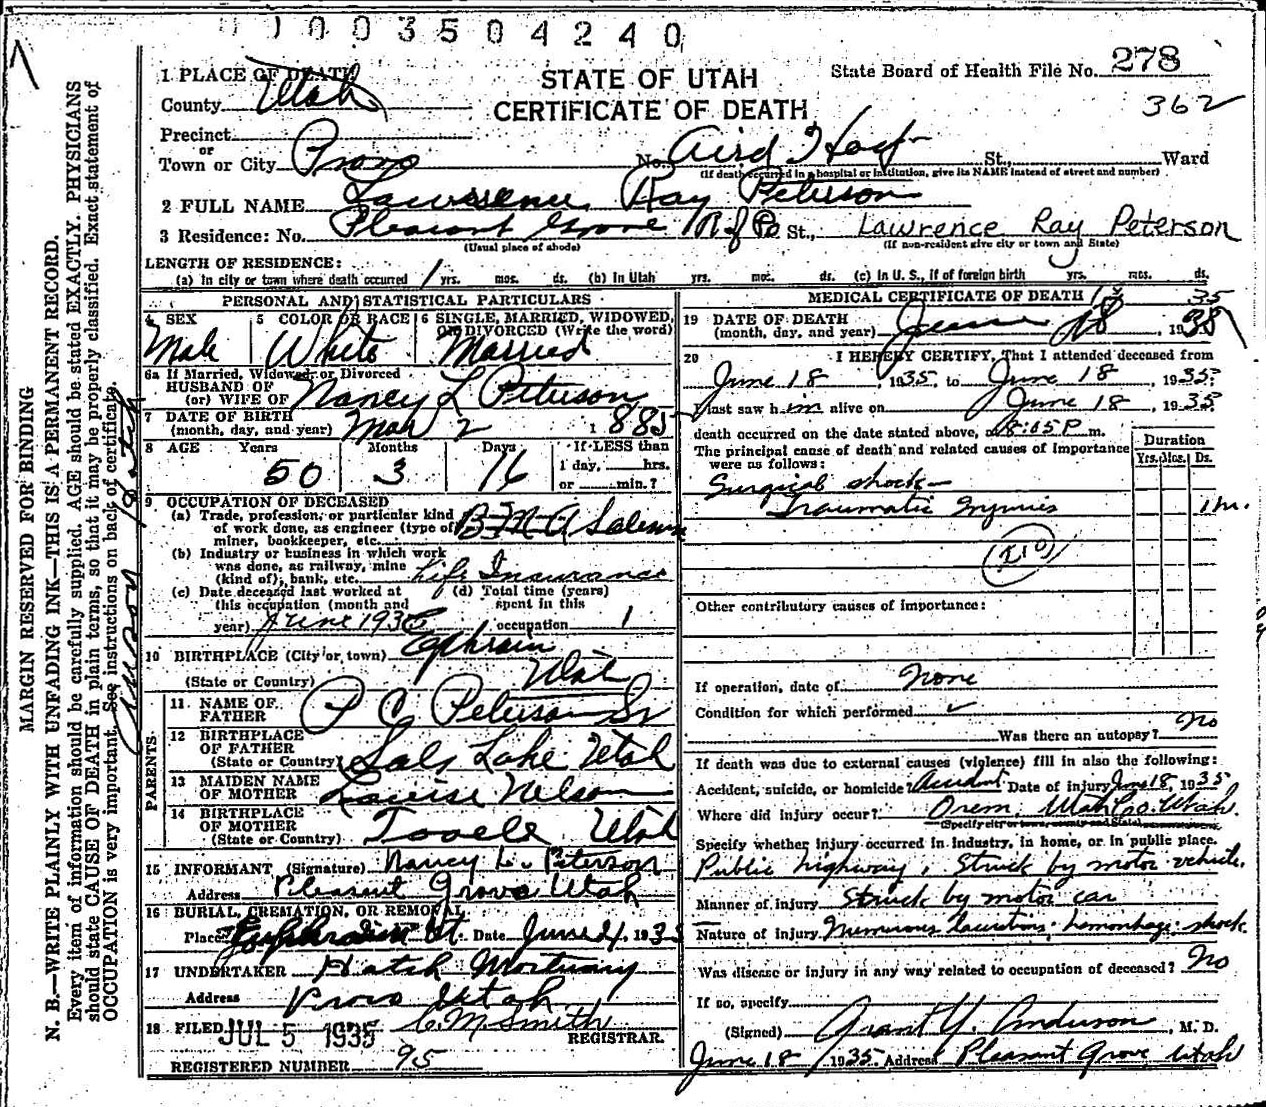 1003504240
STATE OF UTAH
CERTIFICATE OF DEATH
State Board of Health File No. 278
362
1 PLACE OF DEATH
County Utah
Precinct
or
Town or City Provo No. Aird Hosp St., Ward
(If death occurred in a hospital or institution, give its NAME instead of street and number)
2 FULL NAME Lawrence Ray Peterson
3 Residence: No. Pleasant Grove R.f.D. St., Lawrence Ray Peterson
(Usual place of abode) (If non-resident give city or town and State)
LENGTH OF RESIDENCE:
(a) In city or town where death occurred 1 yrs. mos. ds. (b) In Utah yrs. mos. ds. (c) In U. S., if of foreign birth yrs. mos. ds.
PERSONAL AND STATISTICAL PARTICULARS
4 SEX 5 COLOR OR RACE 6 SINGLE, MARRIED, WIDOWED, OR DIVORCED (Write the word)
Male White Married
6a If Married, Widowed, or Divorced
HUSBAND OF
(or) WIFE OF Nancy L Peterson
7 DATE OF BIRTH
(month, day, and year) Mar 2 1885
8 AGE Years Months Days If LESS than
50 3 16 1 day, hrs.
or min.?
9 OCCUPATION OF DECEASED
(a) Trade, profession, or particular kind
of work done, as engineer (type of
miner, bookkeeper, etc. Salesman
(b) Industry or business in which work
was done, as railway, mine
(kind of), bank, etc. Life Insurance
(c) Date deceased last worked at (d) Total time (years)
this occupation (month and spent in this
year) June 1935 occupation 1
10 BIRTHPLACE (City or town) Ephraim
(State or Country) Utah
PARENTS
11 NAME OF
FATHER P C Peterson Sr
12 BIRTHPLACE
OF FATHER
(State or Country) Salt Lake Utah
13 MAIDEN NAME
OF MOTHER Louise Nelson
14 BIRTHPLACE
OF MOTHER
(State or Country) Tooele Utah
15 INFORMANT (Signature) Nancy L. Peterson
Address Pleasant Grove Utah
16 BURIAL, CREMATION, OR REMOVAL
Place Ephraim Ut. Date June 21 1935
17 UNDERTAKER Hatch Mortuary
Address Provo Utah
18 FILED JUL 5 1935 C. M. Smith
REGISTRAR.
REGISTERED NUMBER 95
MEDICAL CERTIFICATE OF DEATH
19 DATE OF DEATH
(month, day, and year) June 18, 1935
20 I HEREBY CERTIFY, That I attended deceased from
June 18, 1935, to June 18, 1935
I last saw him alive on June 18, 1935
death occurred on the date stated above, at 8:05 P m.
The principal cause of death and related causes of importance
were as follows:
Duration
Yrs. Mos. Ds.
Surgical shock
Traumatic Injuries 1 hr.
Other contributory causes of importance:
If operation, date of None
Condition for which performed
Was there an autopsy? no
If death was due to external causes (violence) fill in also the following:
Accident, suicide, or homicide? Accident Date of injury June 18, 1935
Where did injury occur? Orem, Utah Co. Utah
(Specify city or town, county and State)
Specify whether injury occurred in industry, in home, or in public place.
Public highway, Struck by motor vehicle.
Manner of injury Struck by motor car
Nature of injury Numerous lacerations, hemorrhage, shock.
Was disease or injury in any way related to occupation of deceased? No
If so, specify
(Signed) Grant Y. Anderson, M. D.
June 18 1935 Address Pleasant Grove Utah
MARGIN RESERVED FOR BINDING
N. B.—WRITE PLAINLY WITH UNFADING INK—THIS IS A PERMANENT RECORD.
Every item of information should be carefully supplied. AGE should be stated EXACTLY. PHYSICIANS
should state CAUSE OF DEATH in plain terms, so that it may be properly classified. Exact statement of
OCCUPATION is very important. See instructions on back of certificate.